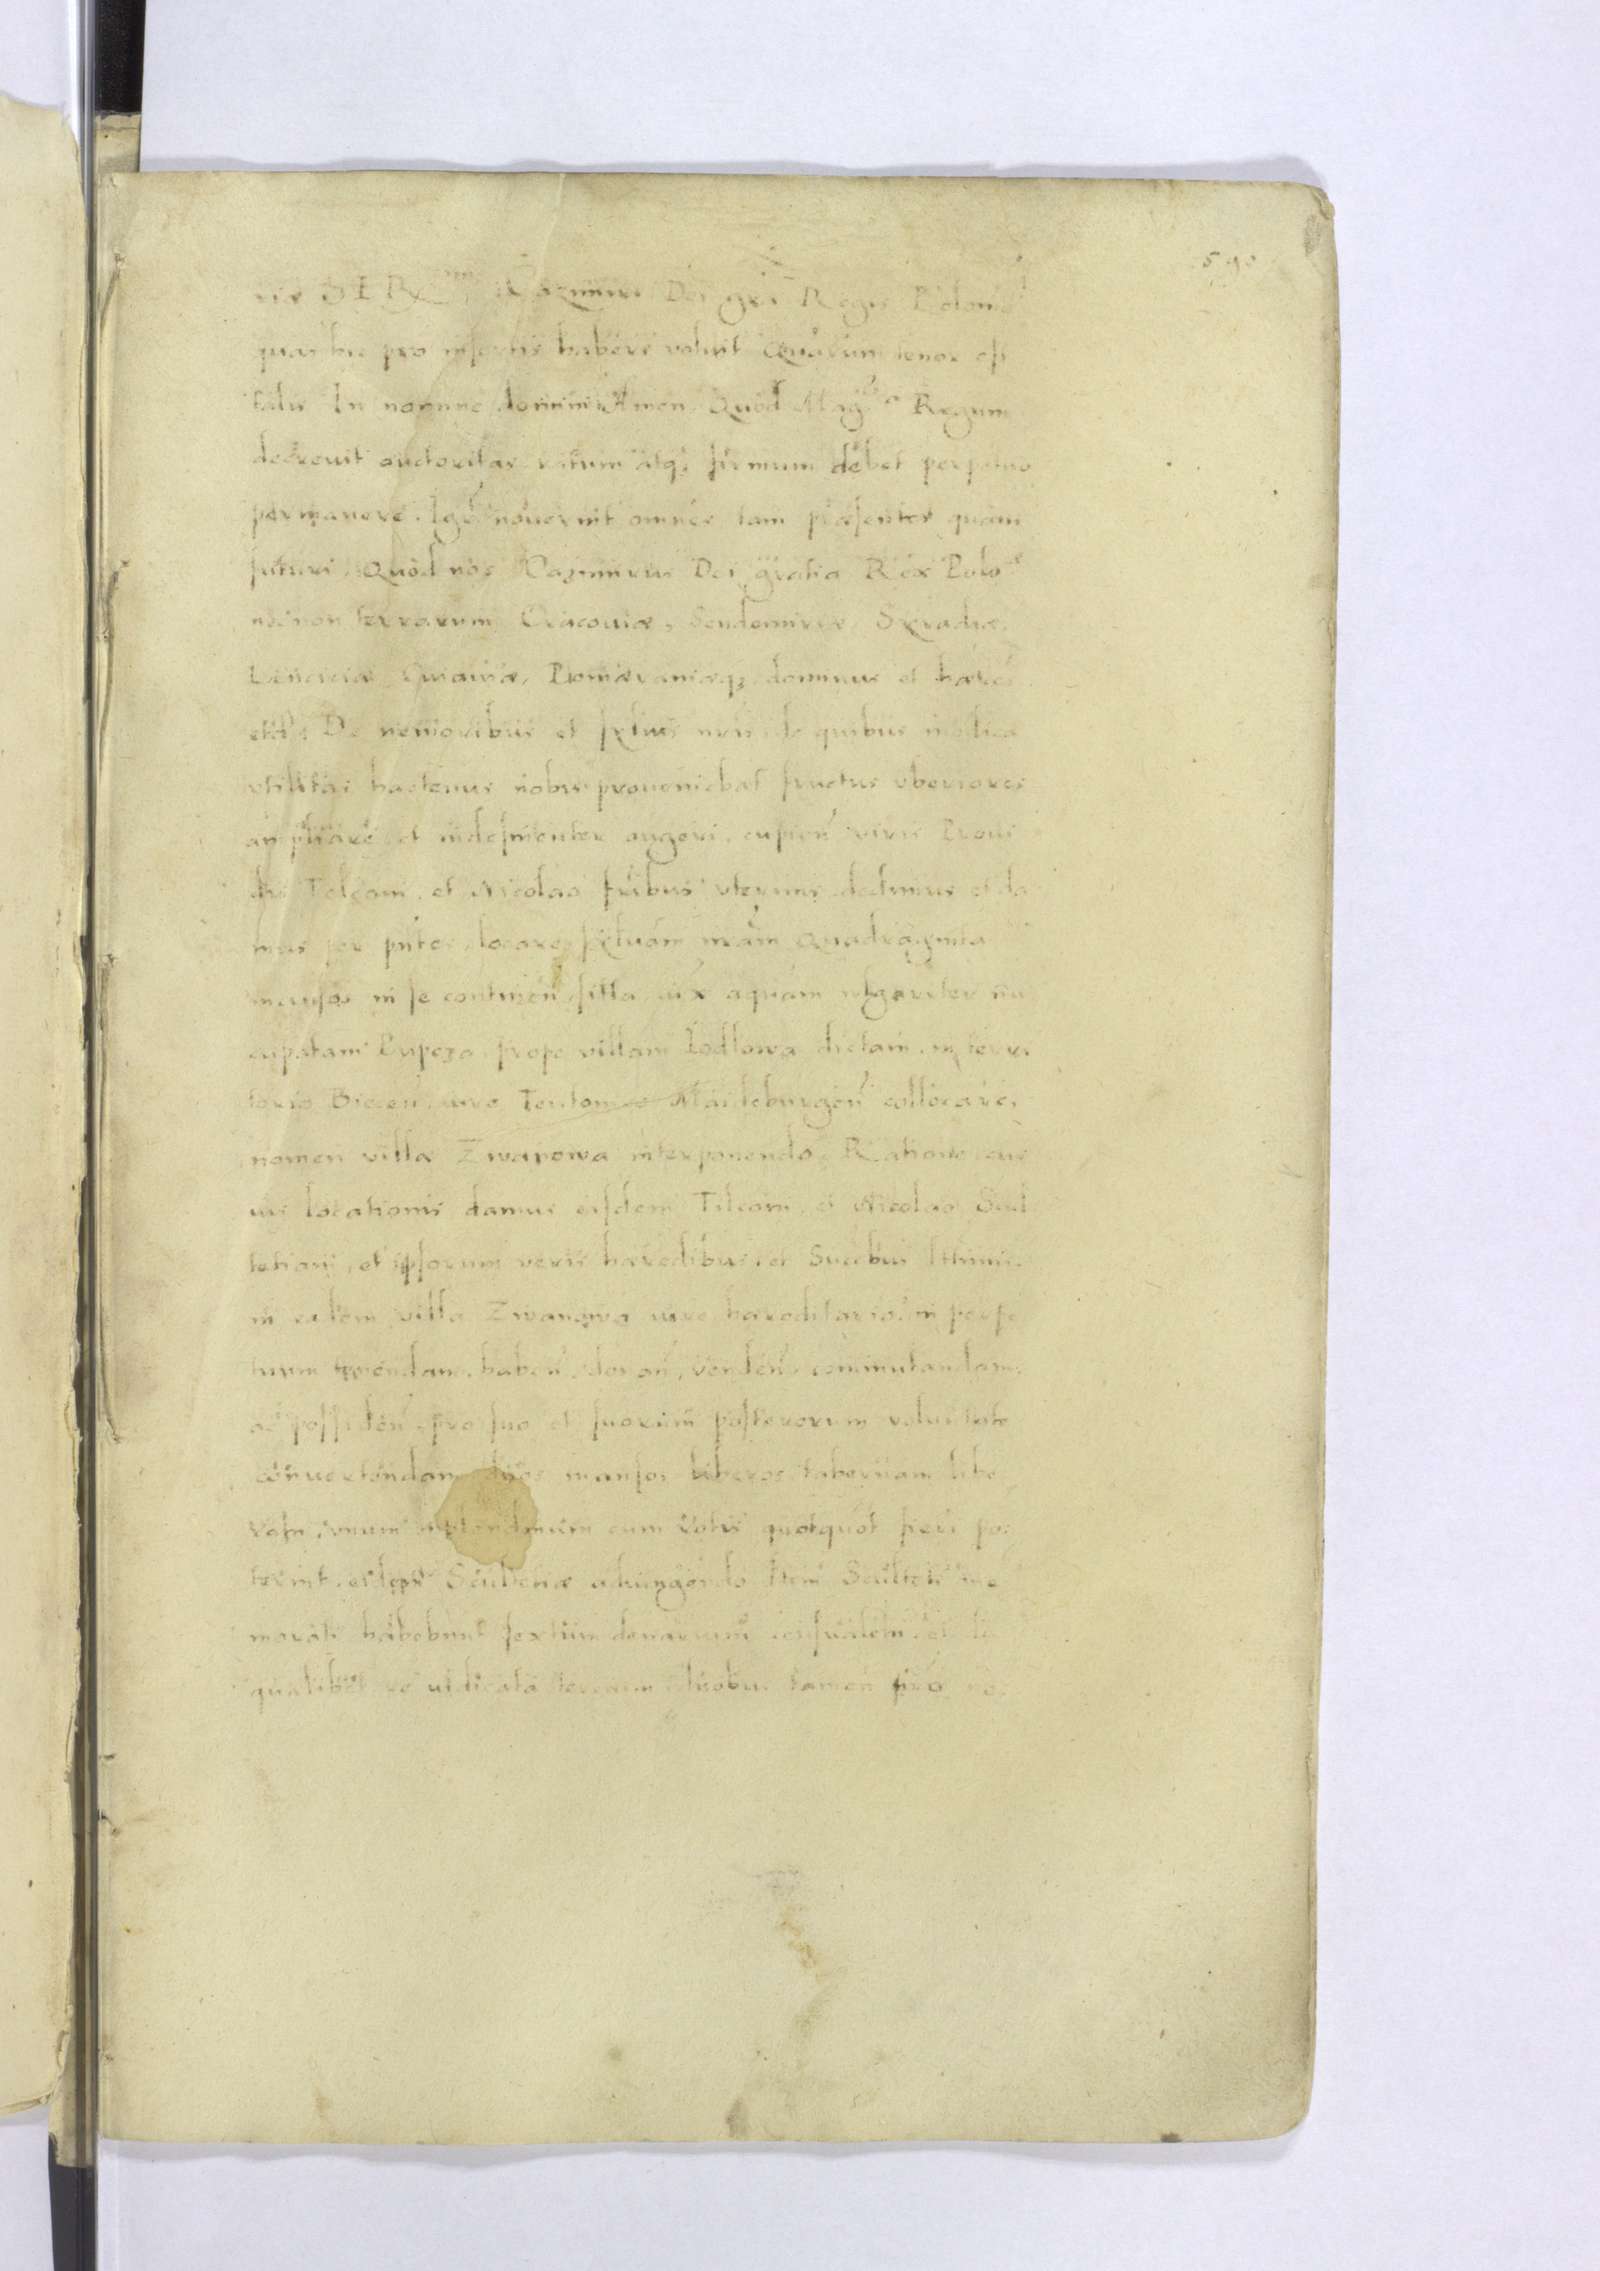 590
Cazimiri Dei gra Regis Polon
quas hic pro insertis habere voluit Quarum tenor est
talis In nomine domini Amen Quod Regum
decrevit auctoritas ratum atq firmum debet perpetuo
permanere. Igr noverint omnes tam præsentes quam
futuri, Quod nos Cazimirus Dei gratia Rex Polo
necnon terrarum Cracoviæ, Sendomiriæ, Syradiæ,
Lanciciæ Cuiaviæ, Pomeraniæq dominus et hæres
De nemoribus et sylvis nris de quibus modica
vtilitas hactenus nobis proveniebat fructus vberiores
ampliare et indesinenter augeri cupien viris Provi
dis Tilconi, et Nicolao fribus vterinis dedimus et da
mus per pntes, locare sylvam nram Quadraginta
mansos in se continen sitta aquam wlgariter nu
cupatam prope villam Iodlowa dictam, in terri
torio Biecen iure Teutonico Maideburgen collocare,
nomen villæ Zwanowa interponendo, Ratione cui
us locationis damus eisdem Tilconi, et Nicolao Scul
tetiam, et ipsorum veris hæredibus, et Succbus ltimis
in eadem villa Zwanowa iure hæreditario, in perpe
tuum tenendam, haben, donan, venden, commutandam,
ac possiden, pro suo et suorum posterorum voluntate
convertendam duos mansos liberos tabernam libe
ram, vnum molendinum cum rotis quotquot fieri po
terint, Scultetiæ adiungendo Item Sculteti me
morati habebunt sextum denarium censualem, et
qualibet re iudicata tercium duobus tamen pro no